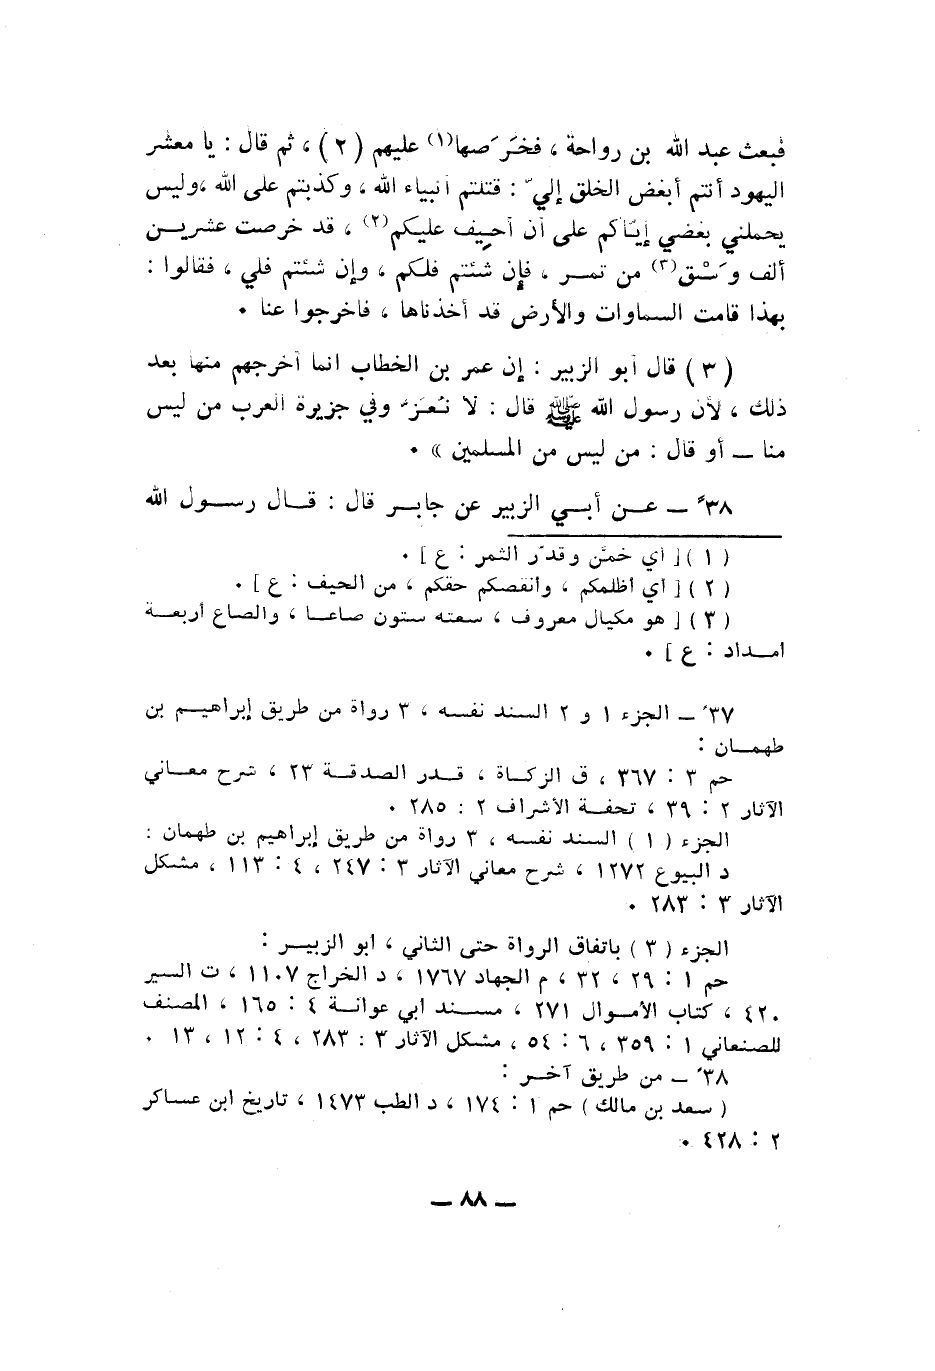 فبعث عبد الله بن رواحة ، فخَرَصها(١) عليهم ( ٢ ) ، ثم قال : يا معشر
اليهود أنتم أبغض الخلق إليّ : قتلتم أنبياء الله ، وكذبتم على الله ،وليس
يحملني بغضي إيّاكم على أن أحيف عليكم(٢) ، قد خرصت عشريـن
ألف وَسْق(٣) من تمـر ، فإن شئتم فلكم ، وإن شئتم فلي ، فقالوا :
بهذا قامت السماوات والأرض قد أخذناها ، فاخرجوا عنا ٠
( ٣ ) قال أبو الزبير : إن عمر بن الخطاب انما أخرجهم منها بعد
ذلك ، لأن رسول الله ﷺ قال : لا نُعَزَّ وفي جزيرة العرب من ليس
منا ــ أو قال : من ليس من المسلمين » ٠
٣٨ً ــ عـن أبـي الزبير عن جابـر قال : قـال رسـول الله
( ١ ) [ أي خمّن وقدّر الثمر : ع ] ٠
( ٢ ) [ أي أظلمكم ، وأنقصكم حقكم ، من الحيف : ع ] ٠
( ٣ ) [ هو مكيال معروف ، سعته ستون صاعـا ، والصاع أربعـة
امـداد : ع ] ٠
٣٧َ ــ الجزء ١ و ٢ السند نفسه ، ٣ رواة من طريق إبراهيـم بن
طهمـان :
حم ٣ : ٣٦٧ ، ق الزكـاة ، قـدر الصدقـة ٢٣ ، شرح معـاني
الآثار ٢ : ٣٩ ، تحفـة الأشراف ٢ : ٢٨٥ ٠
الجزء ( ١ ) السند نفسه ، ٣ رواة من طريق إبراهيم بن طهمان :
د البيوع ١٢٧٢ ، شرح معاني الآثار ٣ : ٢٤٧ ، ٤ : ١١٣ ، مشكل
الآثار ٣ : ٢٨٣ ٠
الجزء ( ٣ ) باتفاق الرواة حتى الثاني ، ابو الزبيـر :
حم ١ : ٢٩ ، ٣٢ ، م الجهاد ١٧٦٧ ، د الخراج ١١٠٧ ، ت السير
٤٢٠ ، كتاب الأمـوال ٢٧١ ، مسـند ابي عوانـة ٤ : ١٦٥ ، المصنف
للصنعاني ١ : ٣٥٩ ، ٦ : ٥٤ ، مشكل الآثار ٣ : ٢٨٣ ، ٤ : ١٢ ، ١٣ ٠
٣٨َ ــ من طريق آخـر :
( سعد بن مالك ) حم ١ : ١٧٤ ، د الطب ١٤٧٣ ، تاريخ ابن عساكر
٢ : ٤٢٨ ٠
ــ ٨٨ ــ